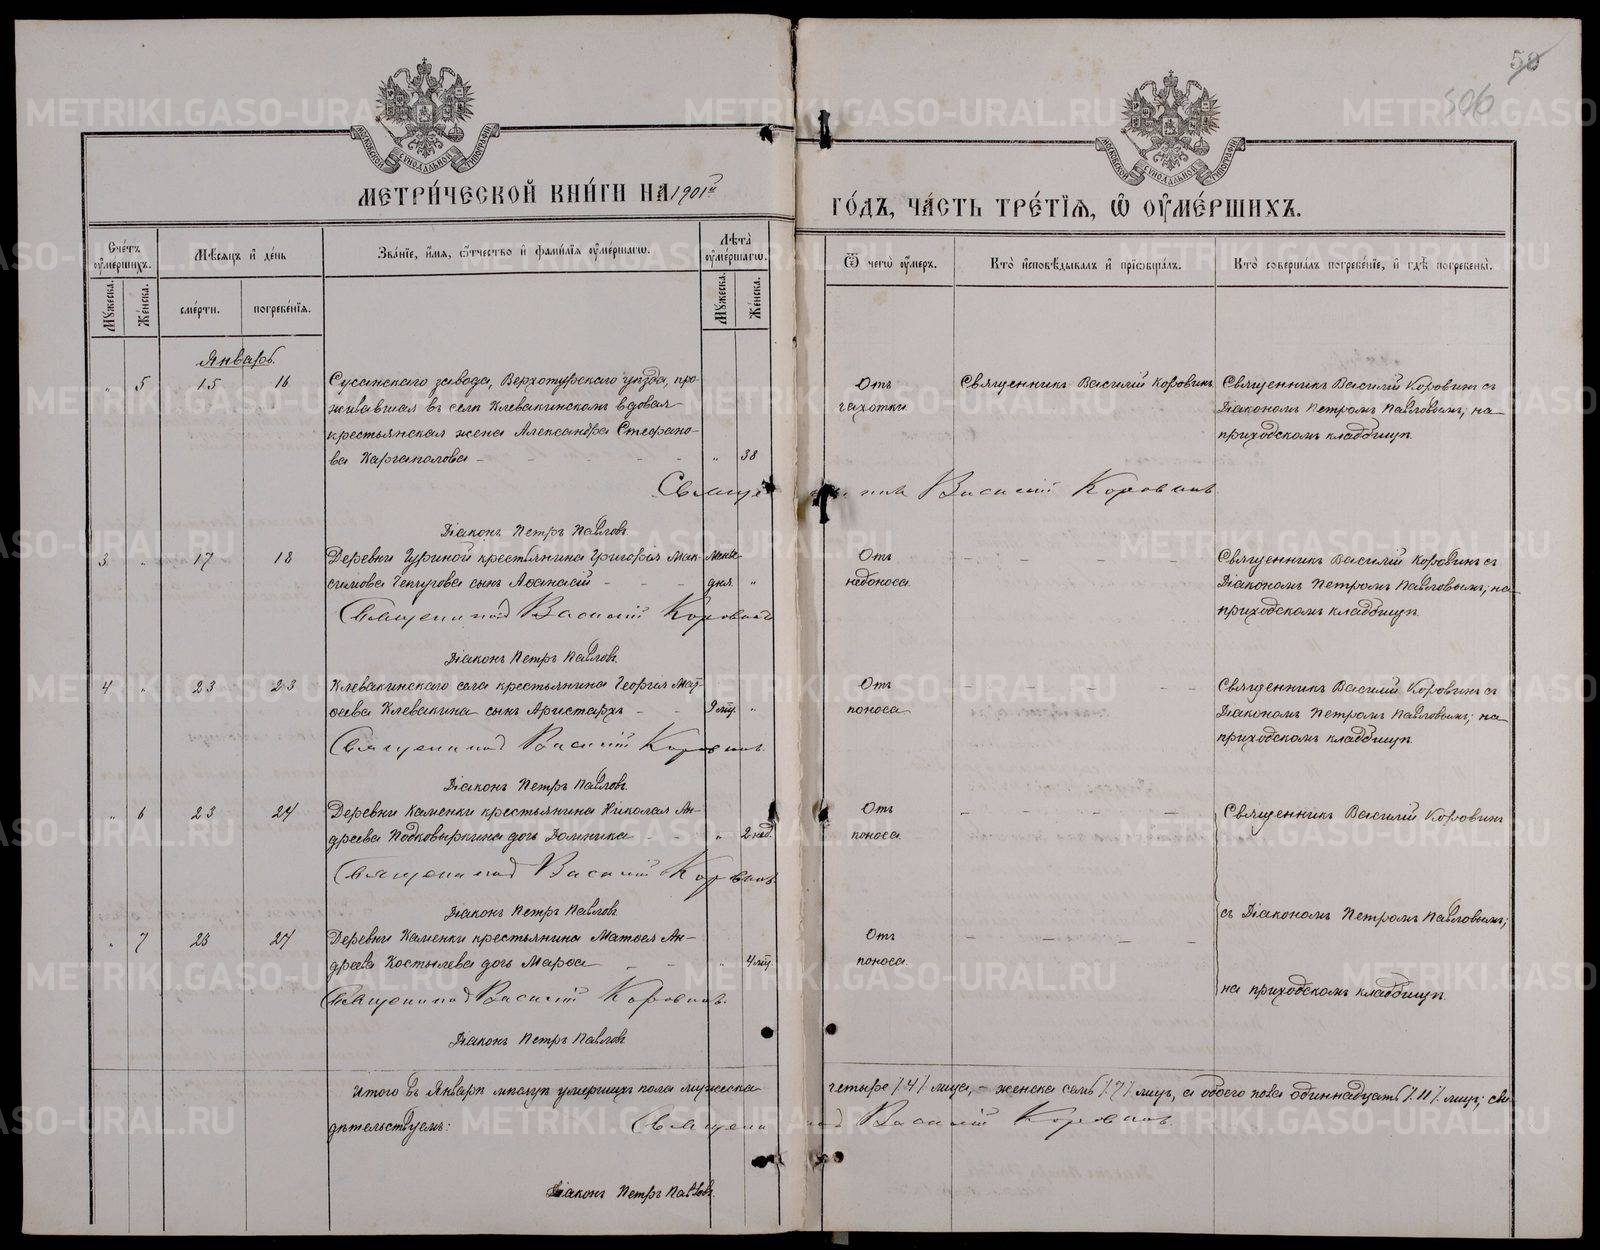 58
506
МОСКОВСКОЙ СѴНОДАЛЬНОЙ ТИПОГРАФІИ
МОСКОВСКОЙ СѴНОДАЛЬНОЙ ТИПОГРАФІИ
МЕТРИ́ЧЕСКОЙ КНИ́ГИ НА 1901й ГО́ДЪ, ЧА́СТЬ ТРЕ́ТІѦ, Ѿ ОУМЕ́РШИХЪ.
Счетъ оумершихъ.
Мѣсяцъ и день
Званіе, имя, отчество и фамилія оумершагѡ.
Лѣта оумершагѡ.
Ѿ чегѡ оумеръ.
Кто исповѣдывалъ и пріѡбщалъ.
Кто совершалъ погребеніе, и гдѣ погребены.
Мужеска.
Женска.
смерти.
погребенія.
Мужеска.
Женска.
Январь.
„ 5 15 16 Сусанскаго завода, Верхотурскаго уѣзда, про-
живавшая въ селѣ Клевакинскомъ вдовая
крестьянская жена Александра Стефано-
ва Каргаполова „ 38
Отъ
чахотки
Священникъ Василій Коровинъ
Священникъ Василій Коровинъ съ
Діакономъ Петромъ Павловымъ; на
приходскомъ кладбищѣ.
Священникъ Василій Коровинъ
Діаконъ Петръ Павловъ.
3 „ 17 18 Деревни Гуриной крестьянина Григорія Мак-
симова Чепчугова сынъ Аѳанасій Менѣе дня „
Отъ
недоноса
Священникъ Василій Коровинъ съ
Діакономъ Петромъ Павловымъ; на
приходскомъ кладбищѣ.
Священникъ Василій Коровинъ
Діаконъ Петръ Павловъ.
4 „ 23 23 Клевакинскаго села крестьянина Георгія Мат-
ѳеева Клевакина сынъ Аристархъ 9 мѣс. „
Отъ
поноса
Священникъ Василій Коровинъ съ
Діакономъ Петромъ Павловымъ; на
приходскомъ кладбищѣ.
Священникъ Василій Коровинъ
Діаконъ Петръ Павловъ.
„ 6 23 24 Деревни Каменки крестьянина Николая Ан-
дреева Подковыркина дочь Домника „ 2 нед.
Отъ
поноса.
Священникъ Василій Коровинъ
Священникъ Василій Коровинъ
Діаконъ Петръ Павловъ
съ Діакономъ Петромъ Павловымъ;
„ 7 23 27 Деревни Каменки крестьянина Матѳея Ан-
дреева Костылева дочь Марѳа „ 4 мѣс.
Отъ
поноса.
на приходскомъ кладбищѣ.
Священникъ Василій Коровинъ.
Діаконъ Петръ Павловъ
Итого въ Январѣ мѣсяцѣ умершихъ пола мужеска четыре /4/ лица, – женска семь /7/ лицъ, а обоего пола одиннадцать /11/ лицъ; сви-
дѣтельствуемъ: Священникъ Василій Коровинъ.
Діаконъ Петръ Павловъ.
METRIKI.GASO-URAL.RU